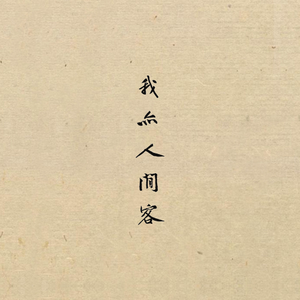 我亦人間客